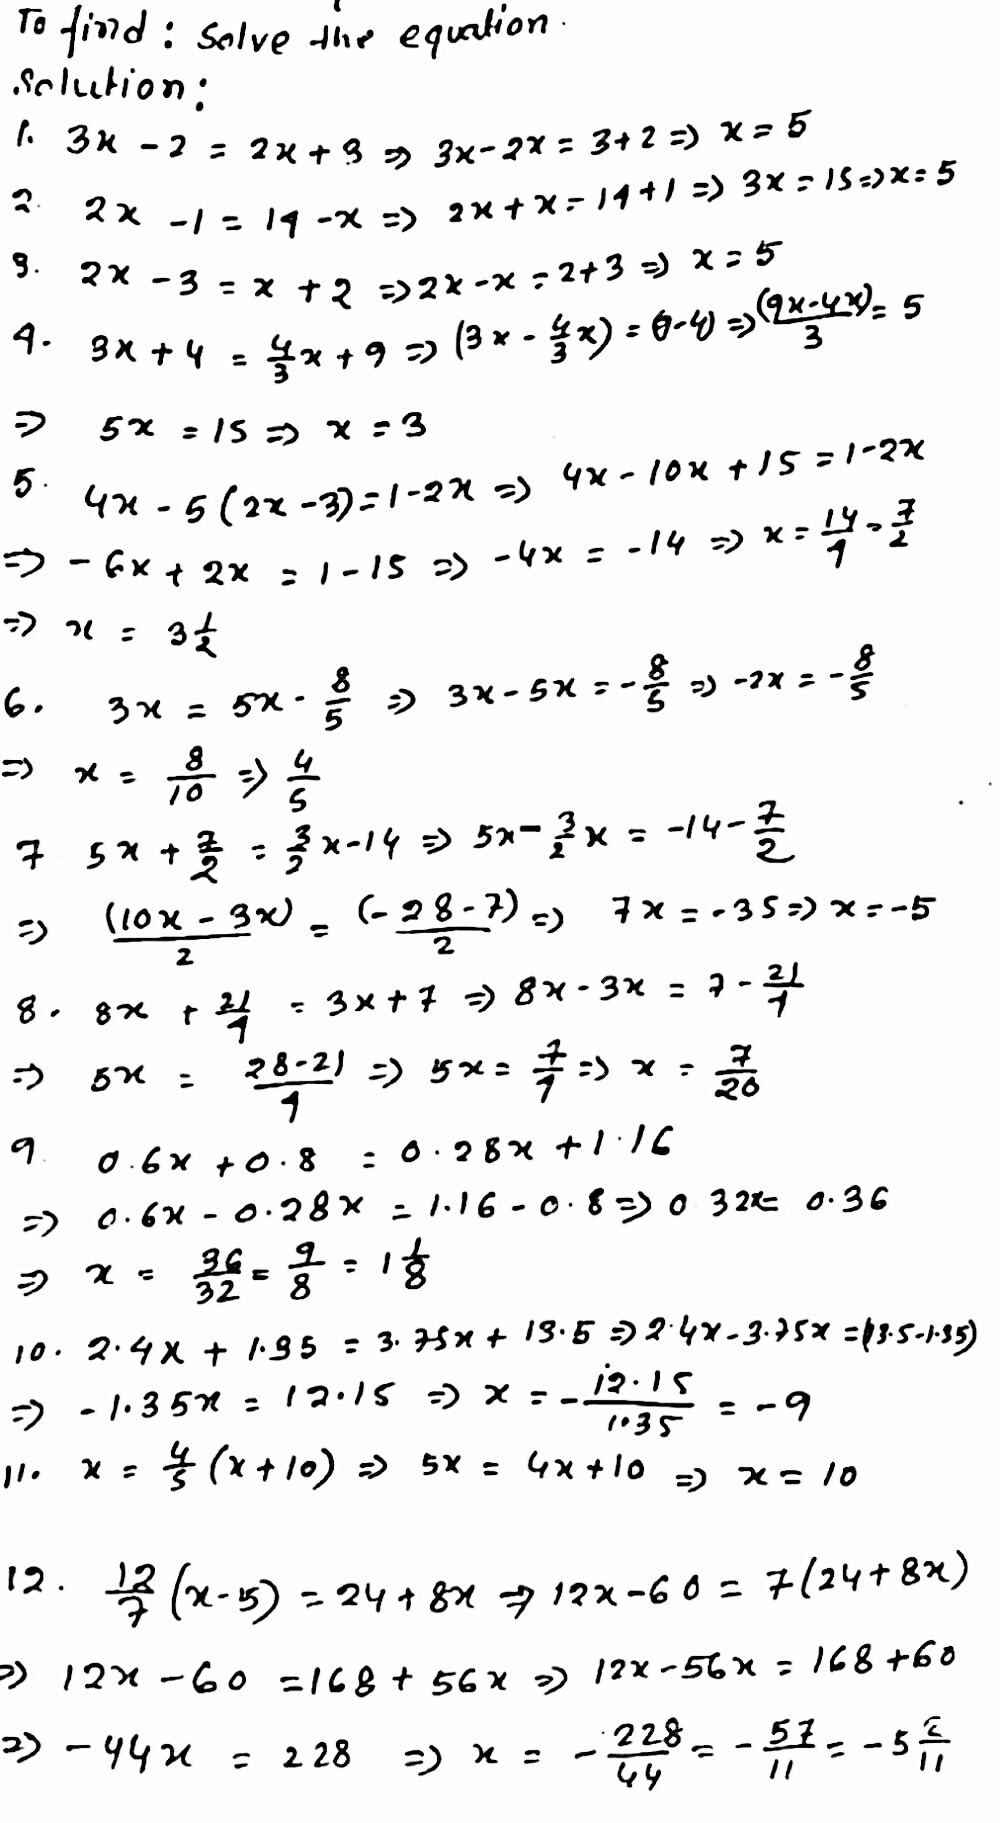 To find : Solve the equation.
Solution :
1. 3x - 2 = 2x + 3 => 3x - 2x = 3 + 2 => x = 5
2. 2x - 1 = 14 - x => 2x + x = 14 + 1 => 3x = 15 => x = 5
3. 2x - 3 = x + 2 => 2x - x = 2 + 3 => x = 5
4. 3x + 4 = 4/3 x + 9 => (3x - 4/3 x) = (9-4) => (9x-4x)/3 = 5
=> 5x = 15 => x = 3
5. 4x - 5(2x - 3) = 1 - 2x => 4x - 10x + 15 = 1 - 2x
=> - 6x + 2x = 1 - 15 => -4x = -14 => x = 14/4 = 7/2
=> x = 3 1/2
6. 3x = 5x - 8/5 => 3x - 5x = - 8/5 => -2x = - 8/5
=> x = 8/10 => 4/5
7 5x + 7/2 = 3/2 x - 14 => 5x - 3/2 x = -14 - 7/2
=> (10x - 3x)/2 = (-28-7)/2 => 7x = -35 => x = -5
8. 8x + 21/4 = 3x + 7 => 8x - 3x = 7 - 21/4
=> 5x = 28-21/4 => 5x = 7/4 => x = 7/20
9. 0.6x + 0.8 = 0.28x + 1.16
=> 0.6x - 0.28x = 1.16 - 0.8 => 0.32x = 0.36
=> x = 36/32 = 9/8 = 1 1/8
10. 2.4x + 1.35 = 3.75x + 13.5 => 2.4x - 3.75x = (13.5-1.35)
=> -1.35x = 12.15 => x = - 12.15/1.35 = -9
11. x = 4/5 (x + 10) => 5x = 4x + 10 => x = 10
12. 12/7 (x-5) = 24 + 8x => 12x - 60 = 7(24 + 8x)
=> 12x - 60 = 168 + 56x => 12x - 56x = 168 + 60
=> -44x = 228 => x = - 228/44 = - 57/11 = -5 2/11